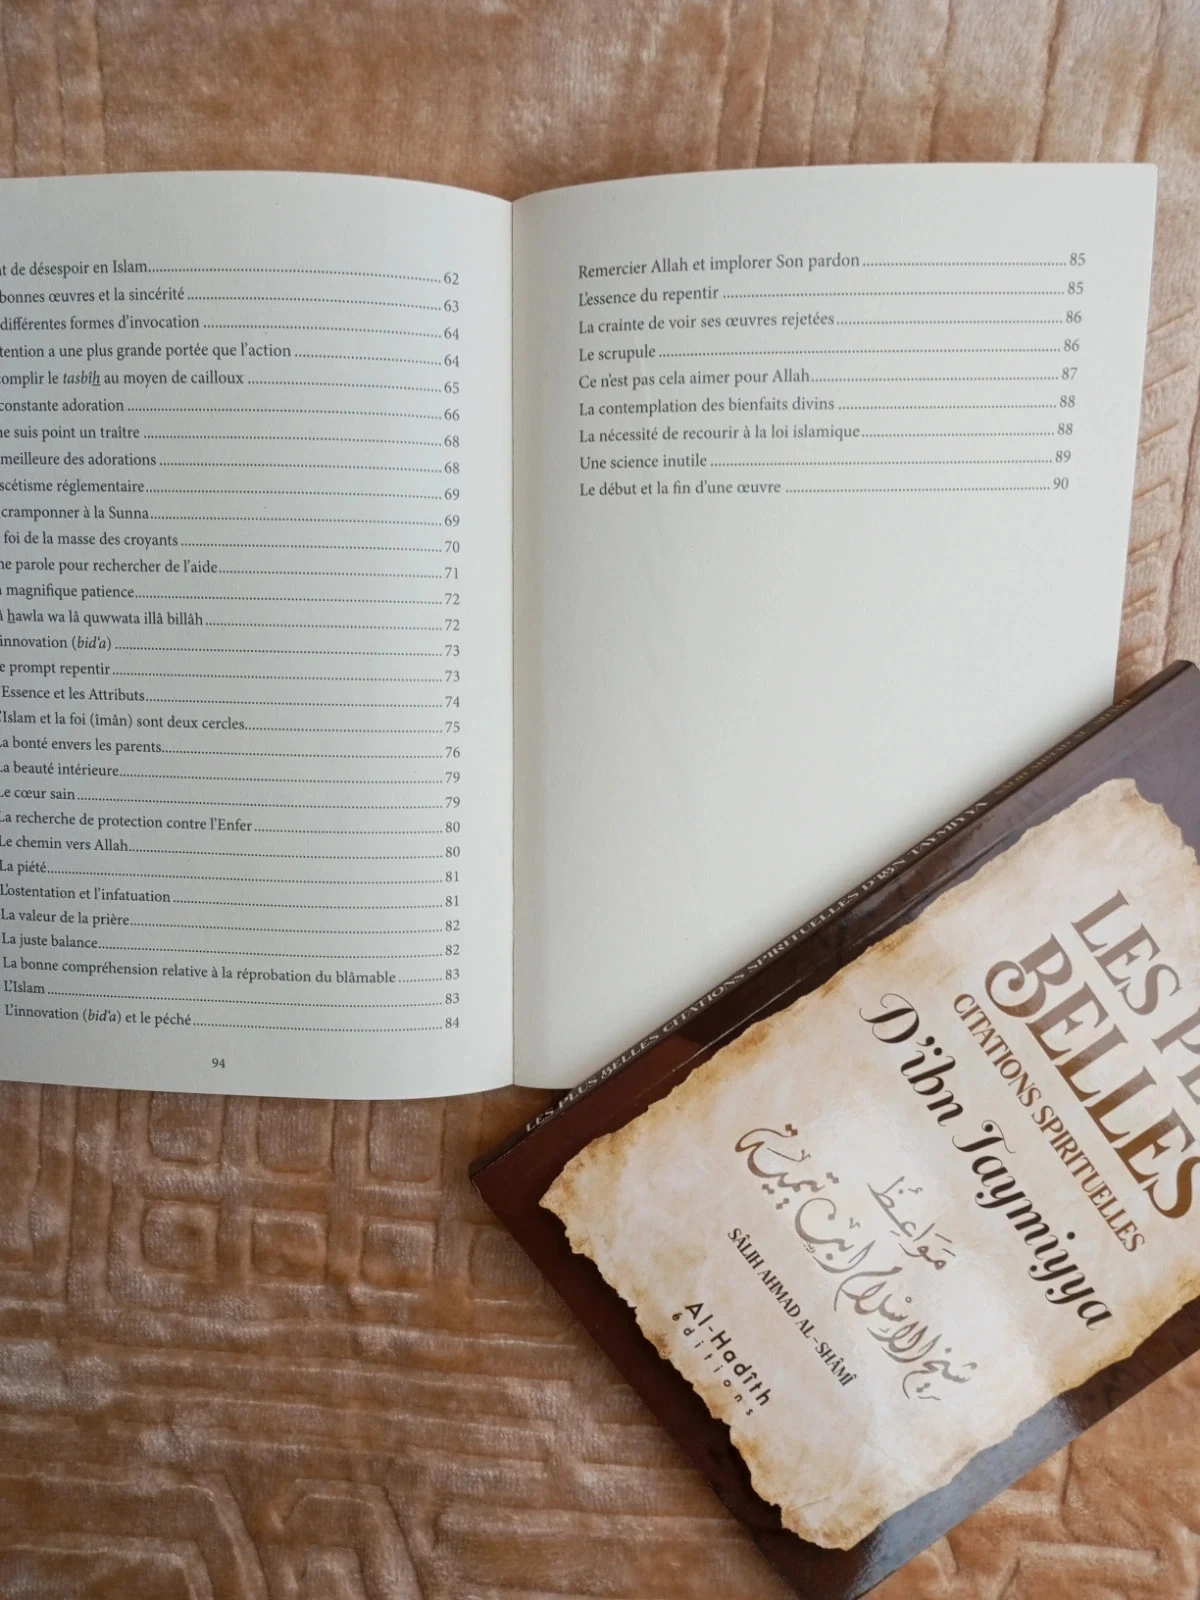 t de désespoir en Islam..........62
bonnes œuvres et la sincérité..........63
différentes formes d'invocation..........64
tention a une plus grande portée que l'action..........64
omplir le tasbîh au moyen de cailloux..........65
constante adoration..........66
ne suis point un traître..........68
meilleure des adorations..........68
scétisme réglementaire..........69
cramponner à la Sunna..........69
foi de la masse des croyants..........70
ne parole pour rechercher de l'aide..........71
magnifique patience..........72
hawla wa lâ quwwata illâ billâh..........72
innovation (bid'a)..........73
e prompt repentir..........73
Essence et les Attributs..........74
'Islam et la foi (îmân) sont deux cercles..........75
La bonté envers les parents..........76
La beauté intérieure..........79
Le cœur sain..........79
La recherche de protection contre l'Enfer..........80
Le chemin vers Allah..........80
La piété..........81
L'ostentation et l'infatuation..........81
La valeur de la prière..........82
La juste balance..........82
La bonne compréhension relative à la réprobation du blâmable..........83
L'Islam..........83
L'innovation (bid'a) et le péché..........84
94
Remercier Allah et implorer Son pardon..........85
L'essence du repentir..........85
La crainte de voir ses œuvres rejetées..........86
Le scrupule..........86
Ce n'est pas cela aimer pour Allah..........87
La contemplation des bienfaits divins..........88
La nécessité de recourir à la loi islamique..........88
Une science inutile..........89
Le début et la fin d'une œuvre..........90
LES PLUS BELLES CITATIONS SPIRITUELLES D'IBN TAYMIYYA
LES PL
BELLES
CITATIONS SPIRITUELLES
D'ibn Taymiyya
مَوَاعِظُ
شيخ الإسلام ابن تيمية
SÂLIH AHMAD AL-SHÂMÎ
Al-Hadîth
éditions